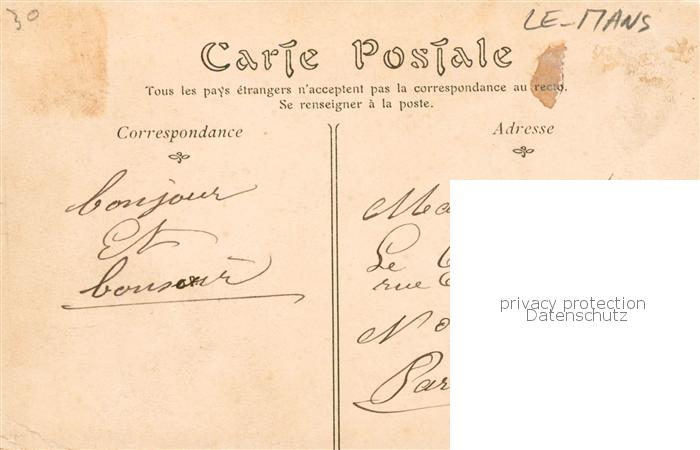 30
LE-MANS
Carte Postale
Tous les pays étrangers n'acceptent pas la correspondance au recto.
Se renseigner à la poste.
Correspondance
Adresse
bonjour
Et
bonsoir
Le
rue
privacy protection
Datenschutz